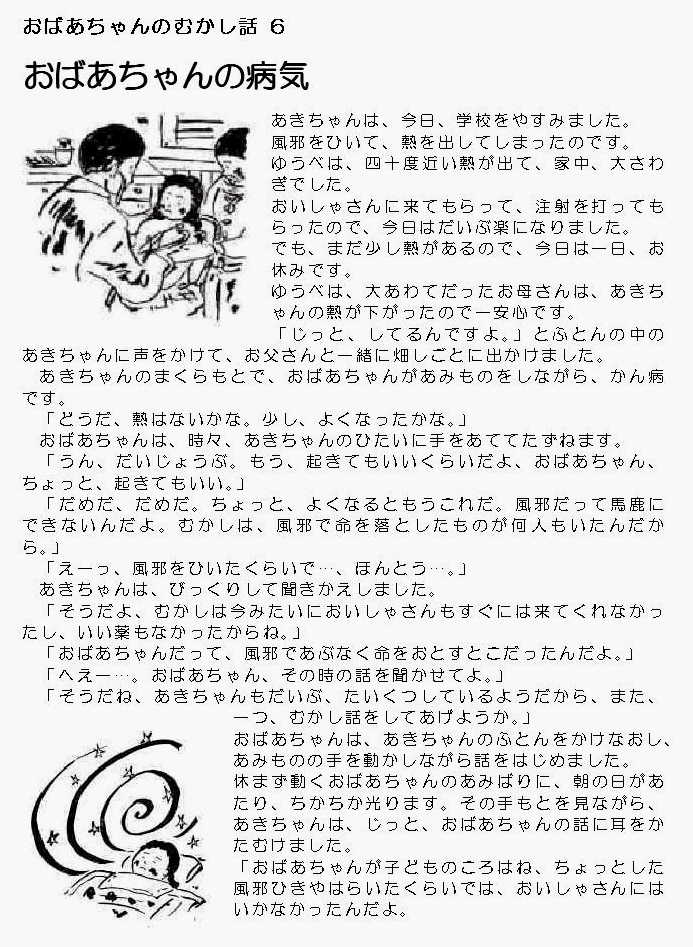 おばあちゃんのむかし話 6
おばあちゃんの病気
あきちゃんは、今日、学校をやすみました。
風邪をひいて、熱を出してしまったのです。
ゆうべは、四十度近い熱が出て、家中、大さわ
ぎでした。
おいしゃさんに来てもらって、注射を打っても
らったので、今日はだいぶ楽になりました。
でも、まだ少し熱があるので、今日は一日、お
休みです。
ゆうべは、大あわてだったお母さんは、あきち
ゃんの熱が下がったので一安心です。
「じっと、してるんですよ。」とふとんの中の
あきちゃんに声をかけて、お父さんと一緒に畑しごとに出かけました。
あきちゃんのまくらもとで、おばあちゃんがあみものをしながら、かん病
です。
「どうだ、熱はないかな。少し、よくなったかな。」
おばあちゃんは、時々、あきちゃんのひたいに手をあててたずねます。
「うん、だいじょうぶ。もう、起きてもいいくらいだよ、おばあちゃん、
ちょっと、起きてもいい。」
「だめだ、だめだ。ちょっと、よくなるともうこれだ。風邪だって馬鹿に
できないんだよ。むかしは、風邪で命を落としたものが何人もいたんだか
ら。」
「えーっ、風邪をひいたくらいで…、ほんとう…。」
あきちゃんは、びっくりして聞きかえしました。
「そうだよ、むかしは今みたいにおいしゃさんもすぐには来てくれなかっ
たし、いい薬もなかったからね。」
「おばあちゃんだって、風邪であぶなく命をおとすとこだったんだよ。」
「へえー…。おばあちゃん、その時の話を聞かせてよ。」
「そうだね、あきちゃんもだいぶ、たいくつしているようだから、また、
一つ、むかし話をしてあげようか。」
おばあちゃんは、あきちゃんのふとんをかけなおし、
あみものの手を動かしながら話をはじめました。
休まず動くおばあちゃんのあみばりに、朝の日があ
たり、ちかちか光ります。その手もとを見ながら、
あきちゃんは、じっと、おばあちゃんの話に耳をか
たむけました。
「おばあちゃんが子どものころはね、ちょっとした
風邪ひきやはらいたくらいでは、おいしゃさんには
いかなかったんだよ。